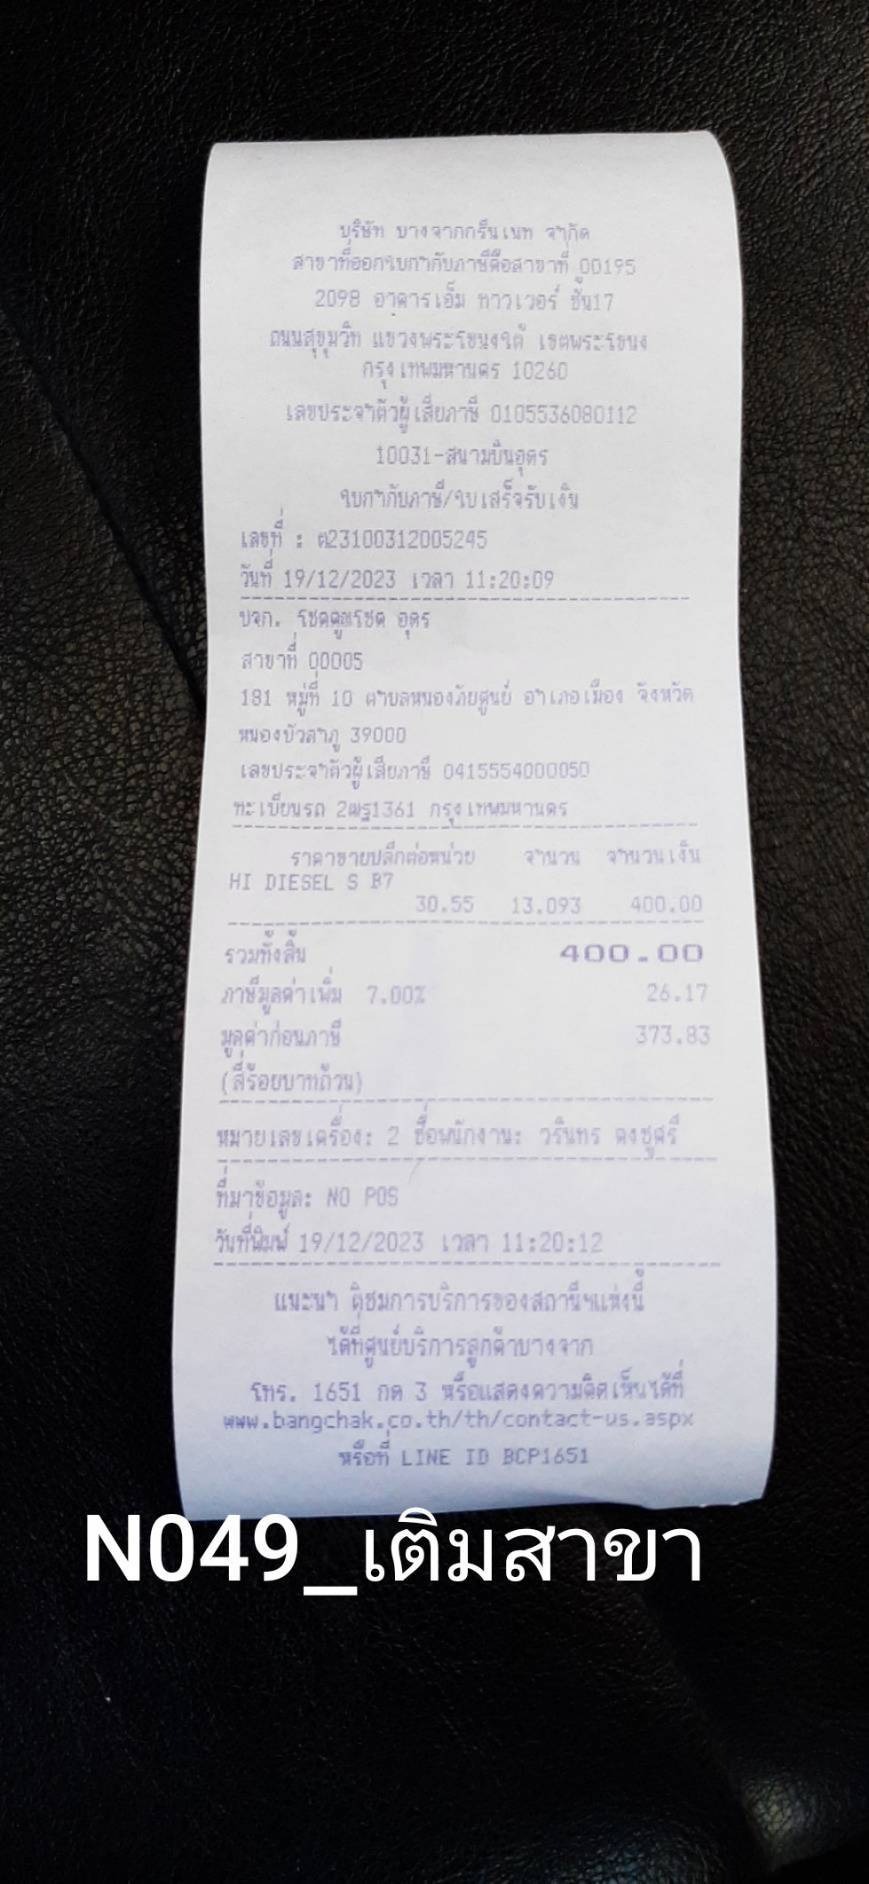 บริษัท บางจากกรีนเนท จำกัด
สาขาที่ออกใบกำกับภาษีคือสาขาที่ 00195
2098 อาคารเอ็ม ทาวเวอร์ ชั้น17
ถนนสุขุมวิท แขวงพระโขนงใต้ เขตพระโขนง
กรุงเทพมหานคร 10260
เลขประจำตัวผู้เสียภาษี 0105536080112
10031-สนามบินอุดร
ใบกำกับภาษี/ใบเสร็จรับเงิน
เลขที่ : ต23100312005245
วันที่ 19/12/2023 เวลา 11:20:09
บจก. โชคคูณโชค อุดร
สาขาที่ 00005
181 หมู่ที่ 10 ตำบลหนองภัยศูนย์ อำเภอเมือง จังหวัด
หนองบัวลำภู 39000
เลขประจำตัวผู้เสียภาษี 0415554000050
ทะเบียนรถ 2ฒฐ1361 กรุงเทพมหานคร
ราคาขายปลีกต่อหน่วย จำนวน จำนวนเงิน
HI DIESEL S B7
30.55 13.093 400.00
รวมทั้งสิ้น 400.00
ภาษีมูลค่าเพิ่ม 7.00% 26.17
มูลค่าก่อนภาษี 373.83
(สี่ร้อยบาทถ้วน)
หมายเลขเครื่อง: 2 ชื่อพนักงาน: วรินทร คงชูศรี
ที่มาข้อมูล: NO POS
วันที่พิมพ์ 19/12/2023 เวลา 11:20:12
แนะนำ ติชมการบริการของสถานีฯแห่งนี้
ได้ที่ศูนย์บริการลูกค้าบางจาก
โทร. 1651 กด 3 หรือแสดงความคิดเห็นได้ที่
www.bangchak.co.th/th/contact-us.aspx
หรือที่ LINE ID BCP1651
N049_เติมสาขา